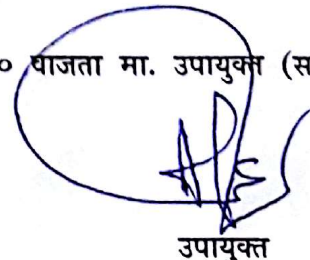 ० वाजता मा. उपायुक्त (स
उपायुक्त